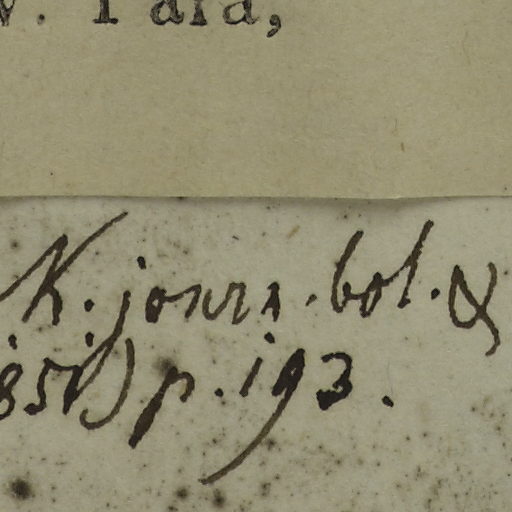 . Para,
K. journ. bot. &
185 ) p. 193.